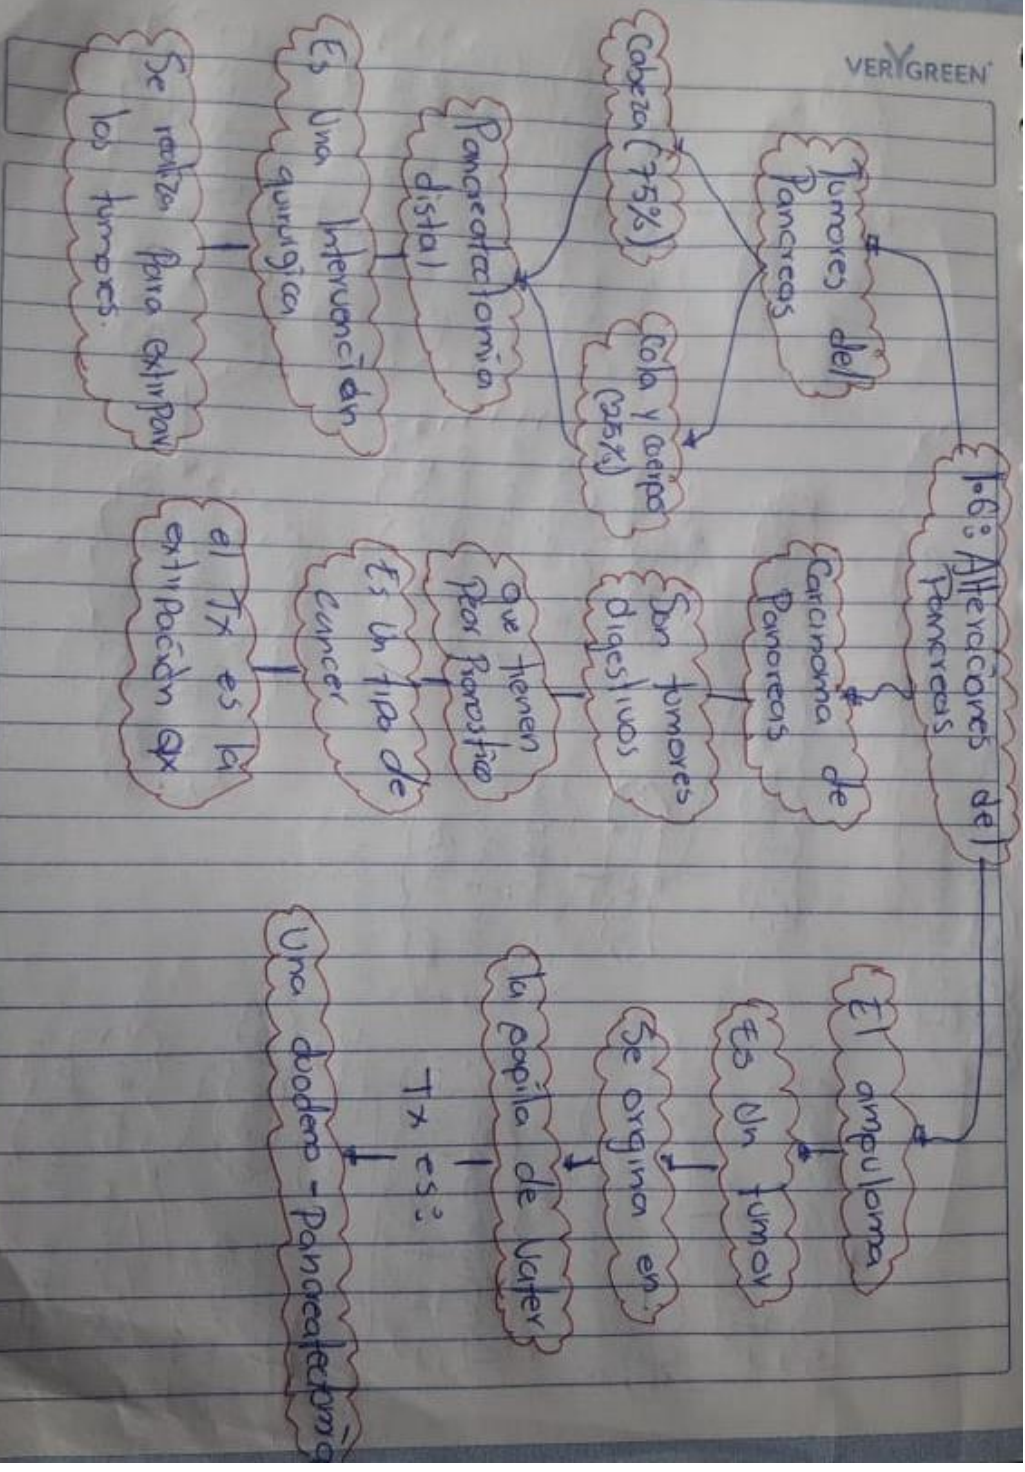 VERYGREEN
1.6: Alteraciones del
Pancreas
Tumores del
Pancreas
Cabeza (75%)
Cola y cuerpo
(25%)
Pancreatactomia
distal
Es Una Intervención
quirurgica
Se realiza Para extirpar
los tumores.
Carcinoma de
Pancreas
Son tumores
digestivos
que tienen
Peor Pronostico
Es Un tipo de
cancer
el Tx es la
extirpación Qx
El ampuloma
Es Un tumor
Se origina en:
la papila de Vater
Tx es:
Una duodeno - Pancreatectomia